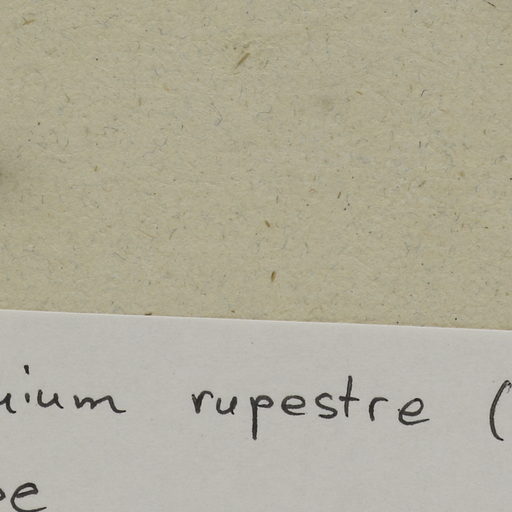 uium rupestre (
pe